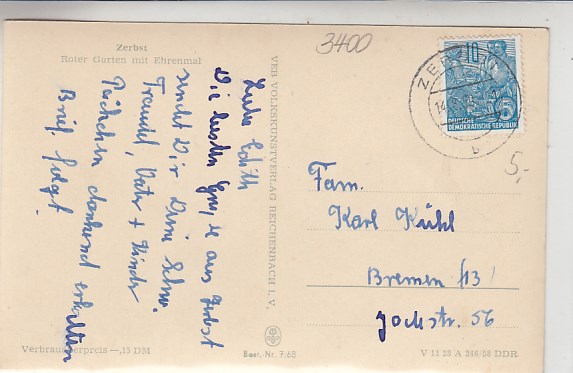 Zerbst
Roter Garten mit Ehrenmal
3400
Liebe Edith
Die besten Grüße aus Zerbst
sendet Dir Deine Schw.
Traudel, Vater + Kinder
Päckchen dankend erhalten
Brief folgt.
VEB VOLKSKUNSTVERLAG REICHENBACH i. V.
10
5
DEUTSCHE
DEMOKRATISCHE REPUBLIK
ZERBST
b
5,-
Fam.
Karl Kühl
Bremen 13!
Jochstr. 56
Verbraucherpreis —,15 DM
Best.-Nr. 7/68
V 11 28 A 266/58 DDR